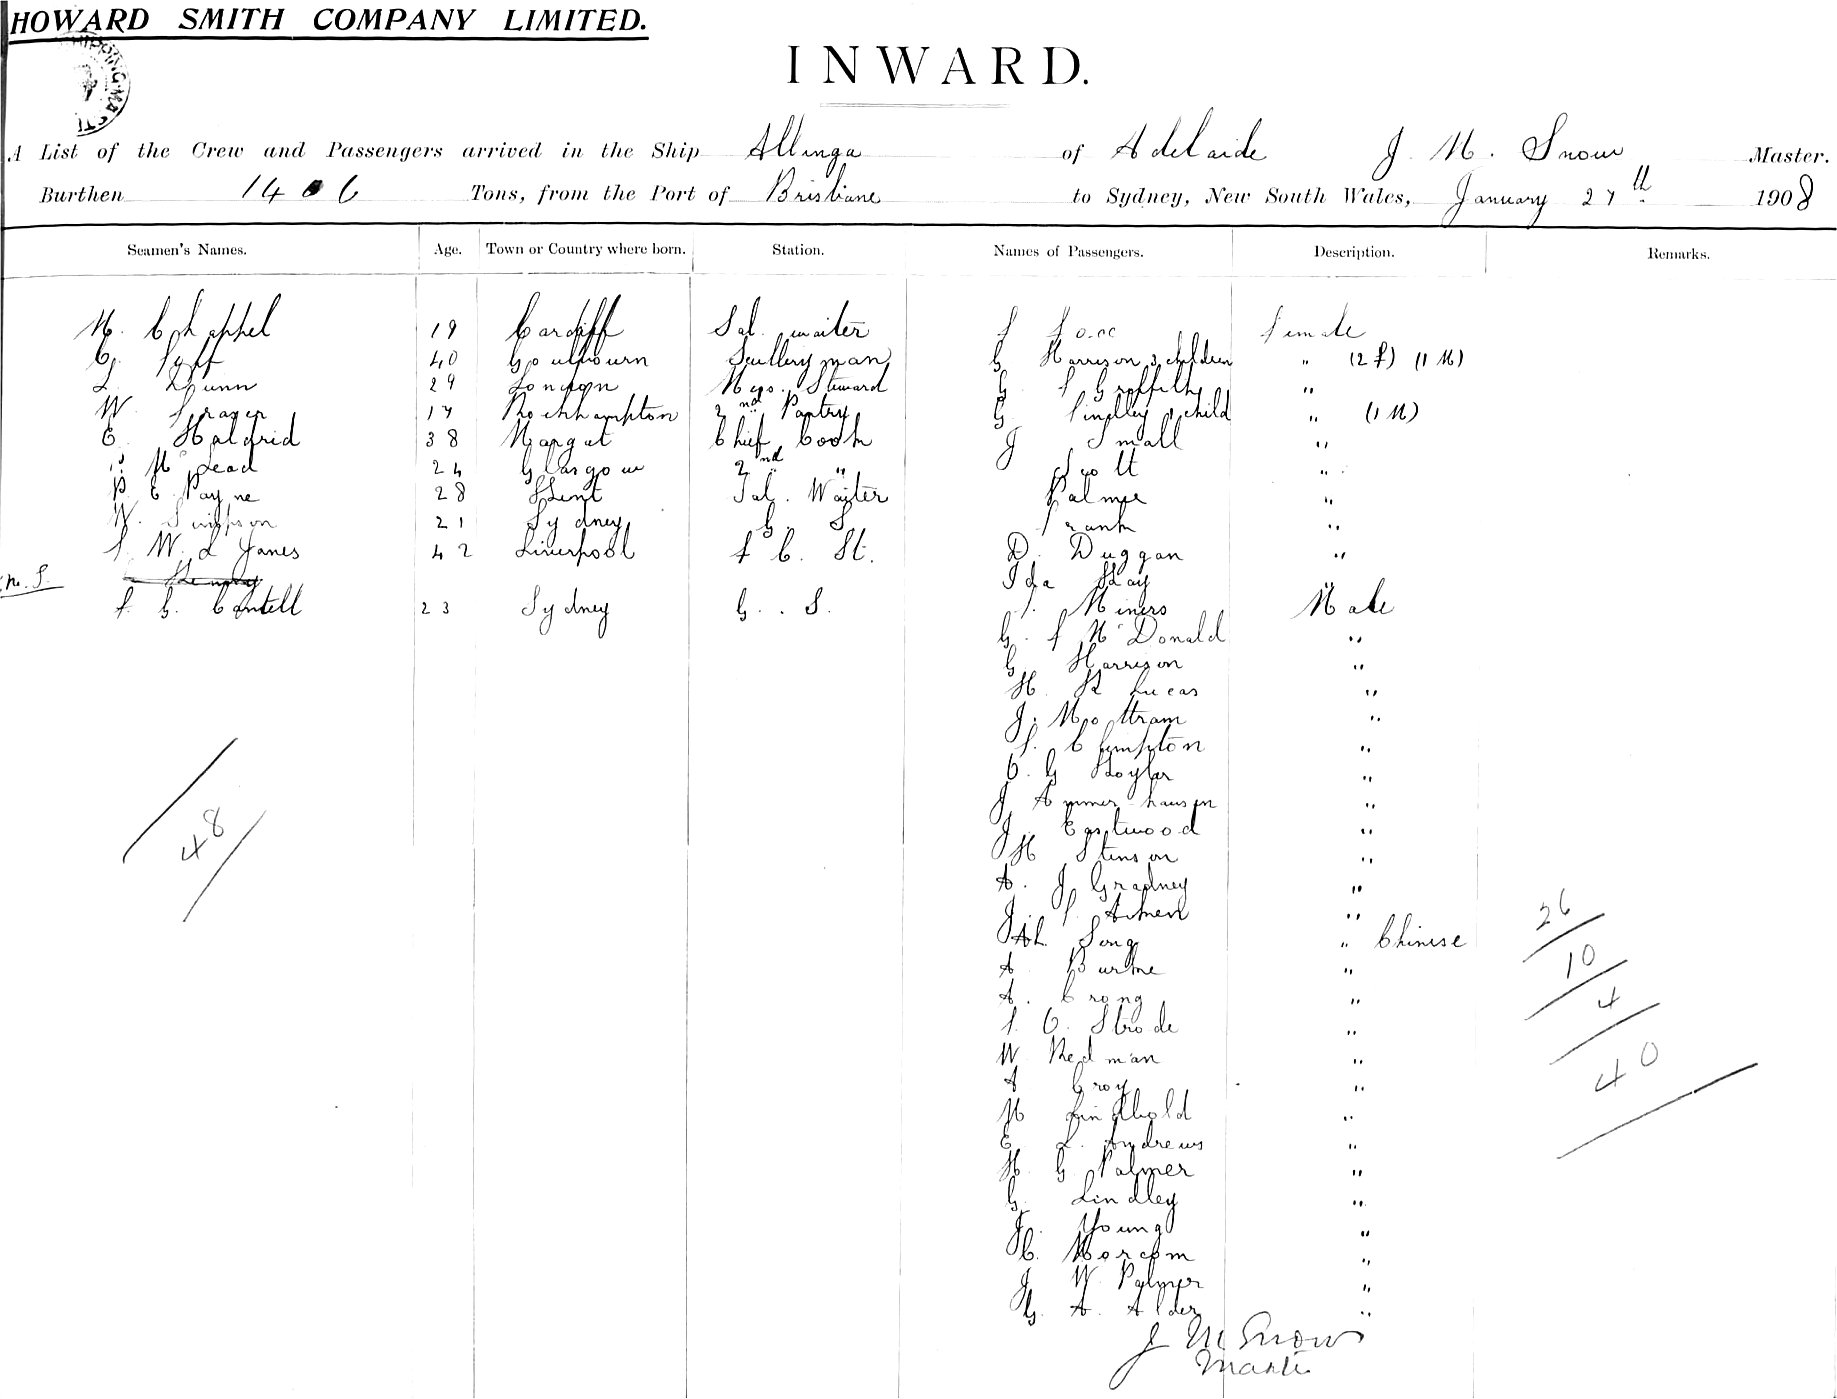 HOWARD SMITH COMPANY LIMITED.
SHIPPING MASTE
INWARD.
A List of the Crew and Passengers arrived in the Ship Allinga of Adelaide J. M. Snow Master.
Burthen 1406 Tons, from the Port of Brisbane to Sydney, New South Wales, January 27th 1908
Seamen's Names. Age. Town or Country where born. Station. Names of Passengers. Description. Remarks.
M. Chappel 19 Cardiff Sal. waiter Female
G. 40 Goulbourn Scullery man G Harrison 3 children " (2 f) (1 M)
L. Dunn 29 London Mess. Steward G. Griffith "
W. Fraser 17 Rockhampton 2nd Pantry G. Findley 1 child " (1 M)
E. Haldrid 38 Margat Chief Cook J Small "
McLead 24 Glasgow 2nd " Scott "
P. E. Payne 28 Kent Sal. Waiter Palmer "
W. Simpson 21 Sydney G. S. Frank "
F. W. L Janes 42 Liverpool F. C. St. D. Duggan "
Ida Hay "
F. G. Cantell 23 Sydney G. S. Miners Male
G. F McDonald "
G. Harrison "
H. R Lucas "
J. Mottram "
S. Climpton "
C. G Hoyler "
J Ammerhausen "
J. Eastwood "
H Stenson "
A. J. Gradney "
J. F. Aitken "
Ah Song " Chinese
A. Burke "
A. Crong "
F. C. Strode "
W Redman "
A Croy "
M Lindbold "
E. L. Andrews "
H. G Palmer "
G. Lindley "
J. Young "
C. Morcom "
J. W. Palmer "
G. A. Alder "
48
26
10
4
40
J M Snow
Master